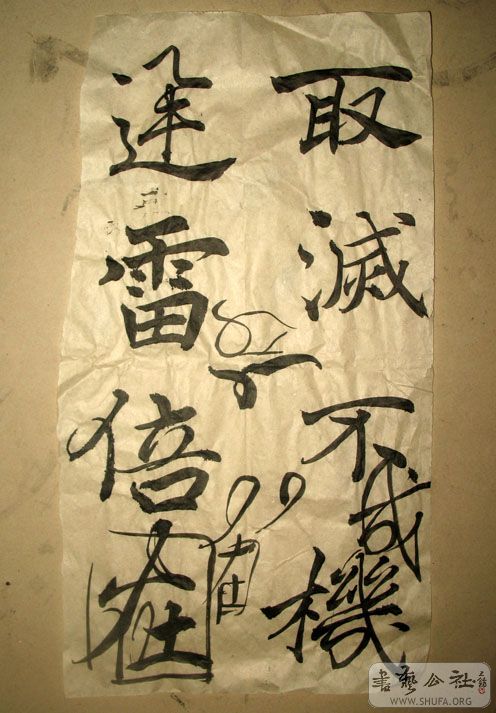 取滅不機
成
雷倍在
書藝公社
WWW.SHUFA.ORG